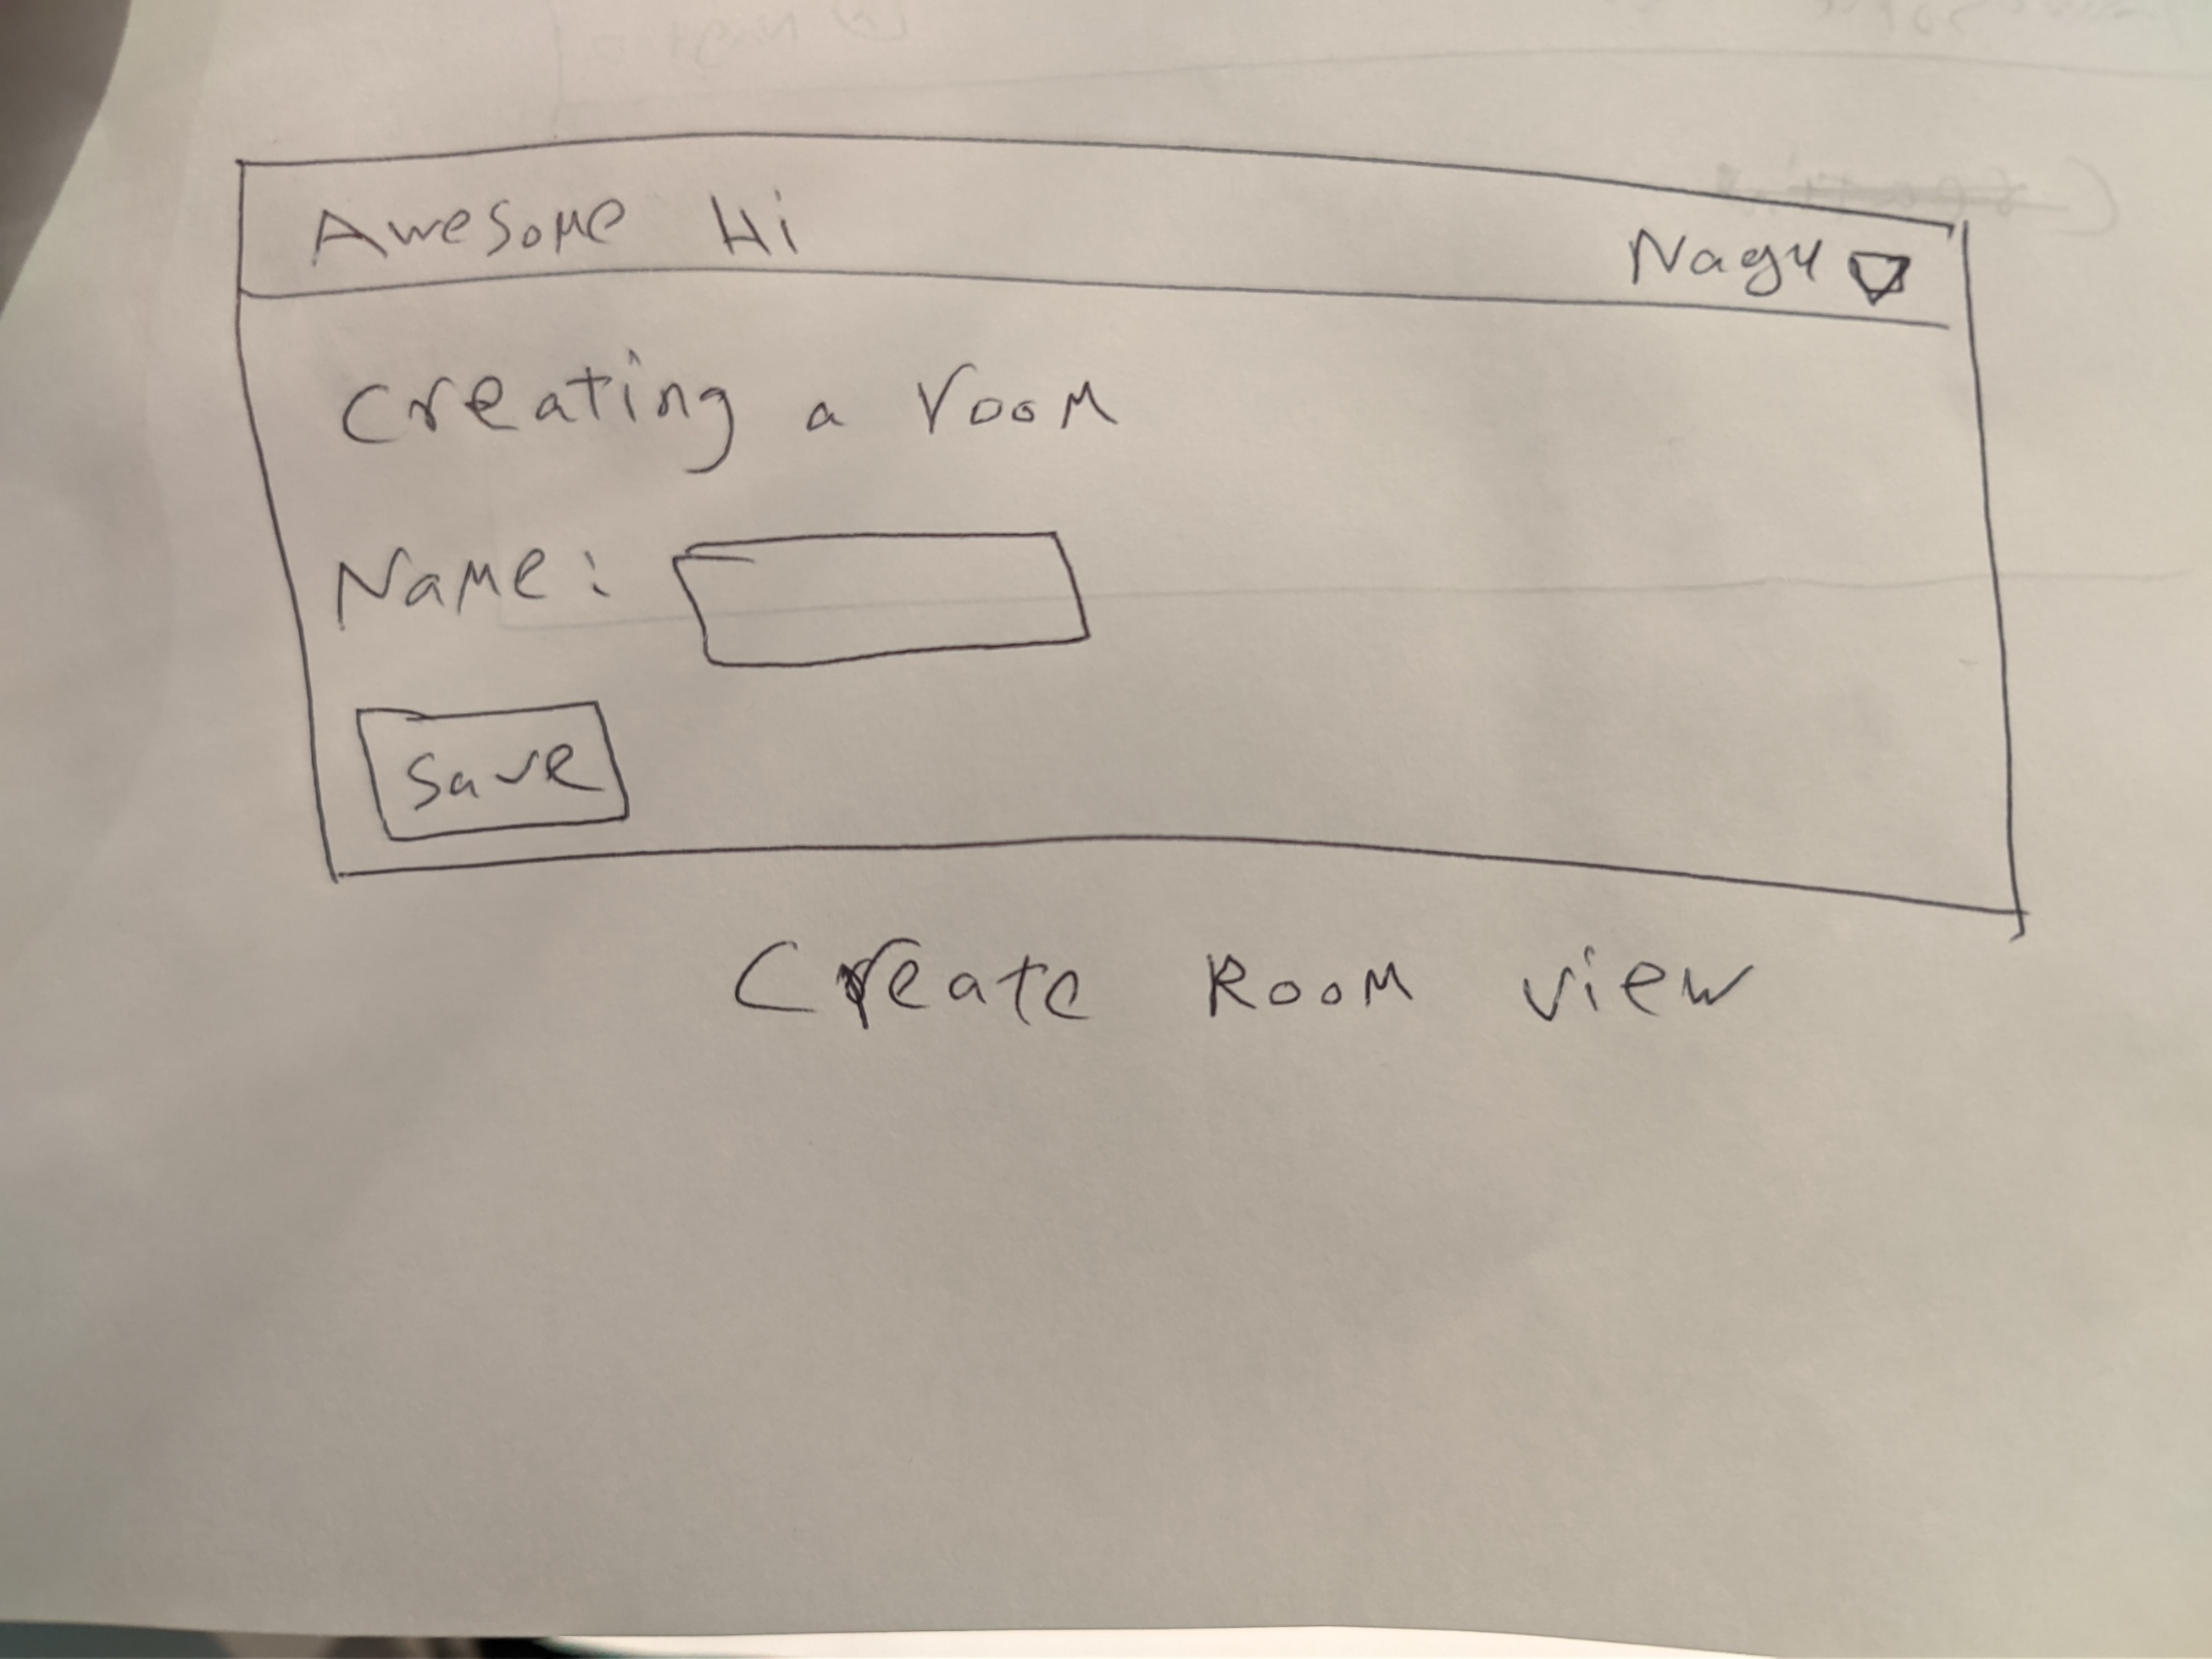 Awesome Hi
Nagy
Creating a room
Name:
Save
Create Room view